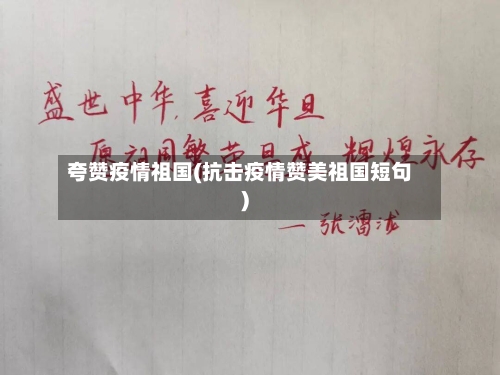 盛世中华,喜迎华旦
愿祖国繁荣昌盛 辉煌永存
夸赞疫情祖国(抗击疫情赞美祖国短句
)
—张